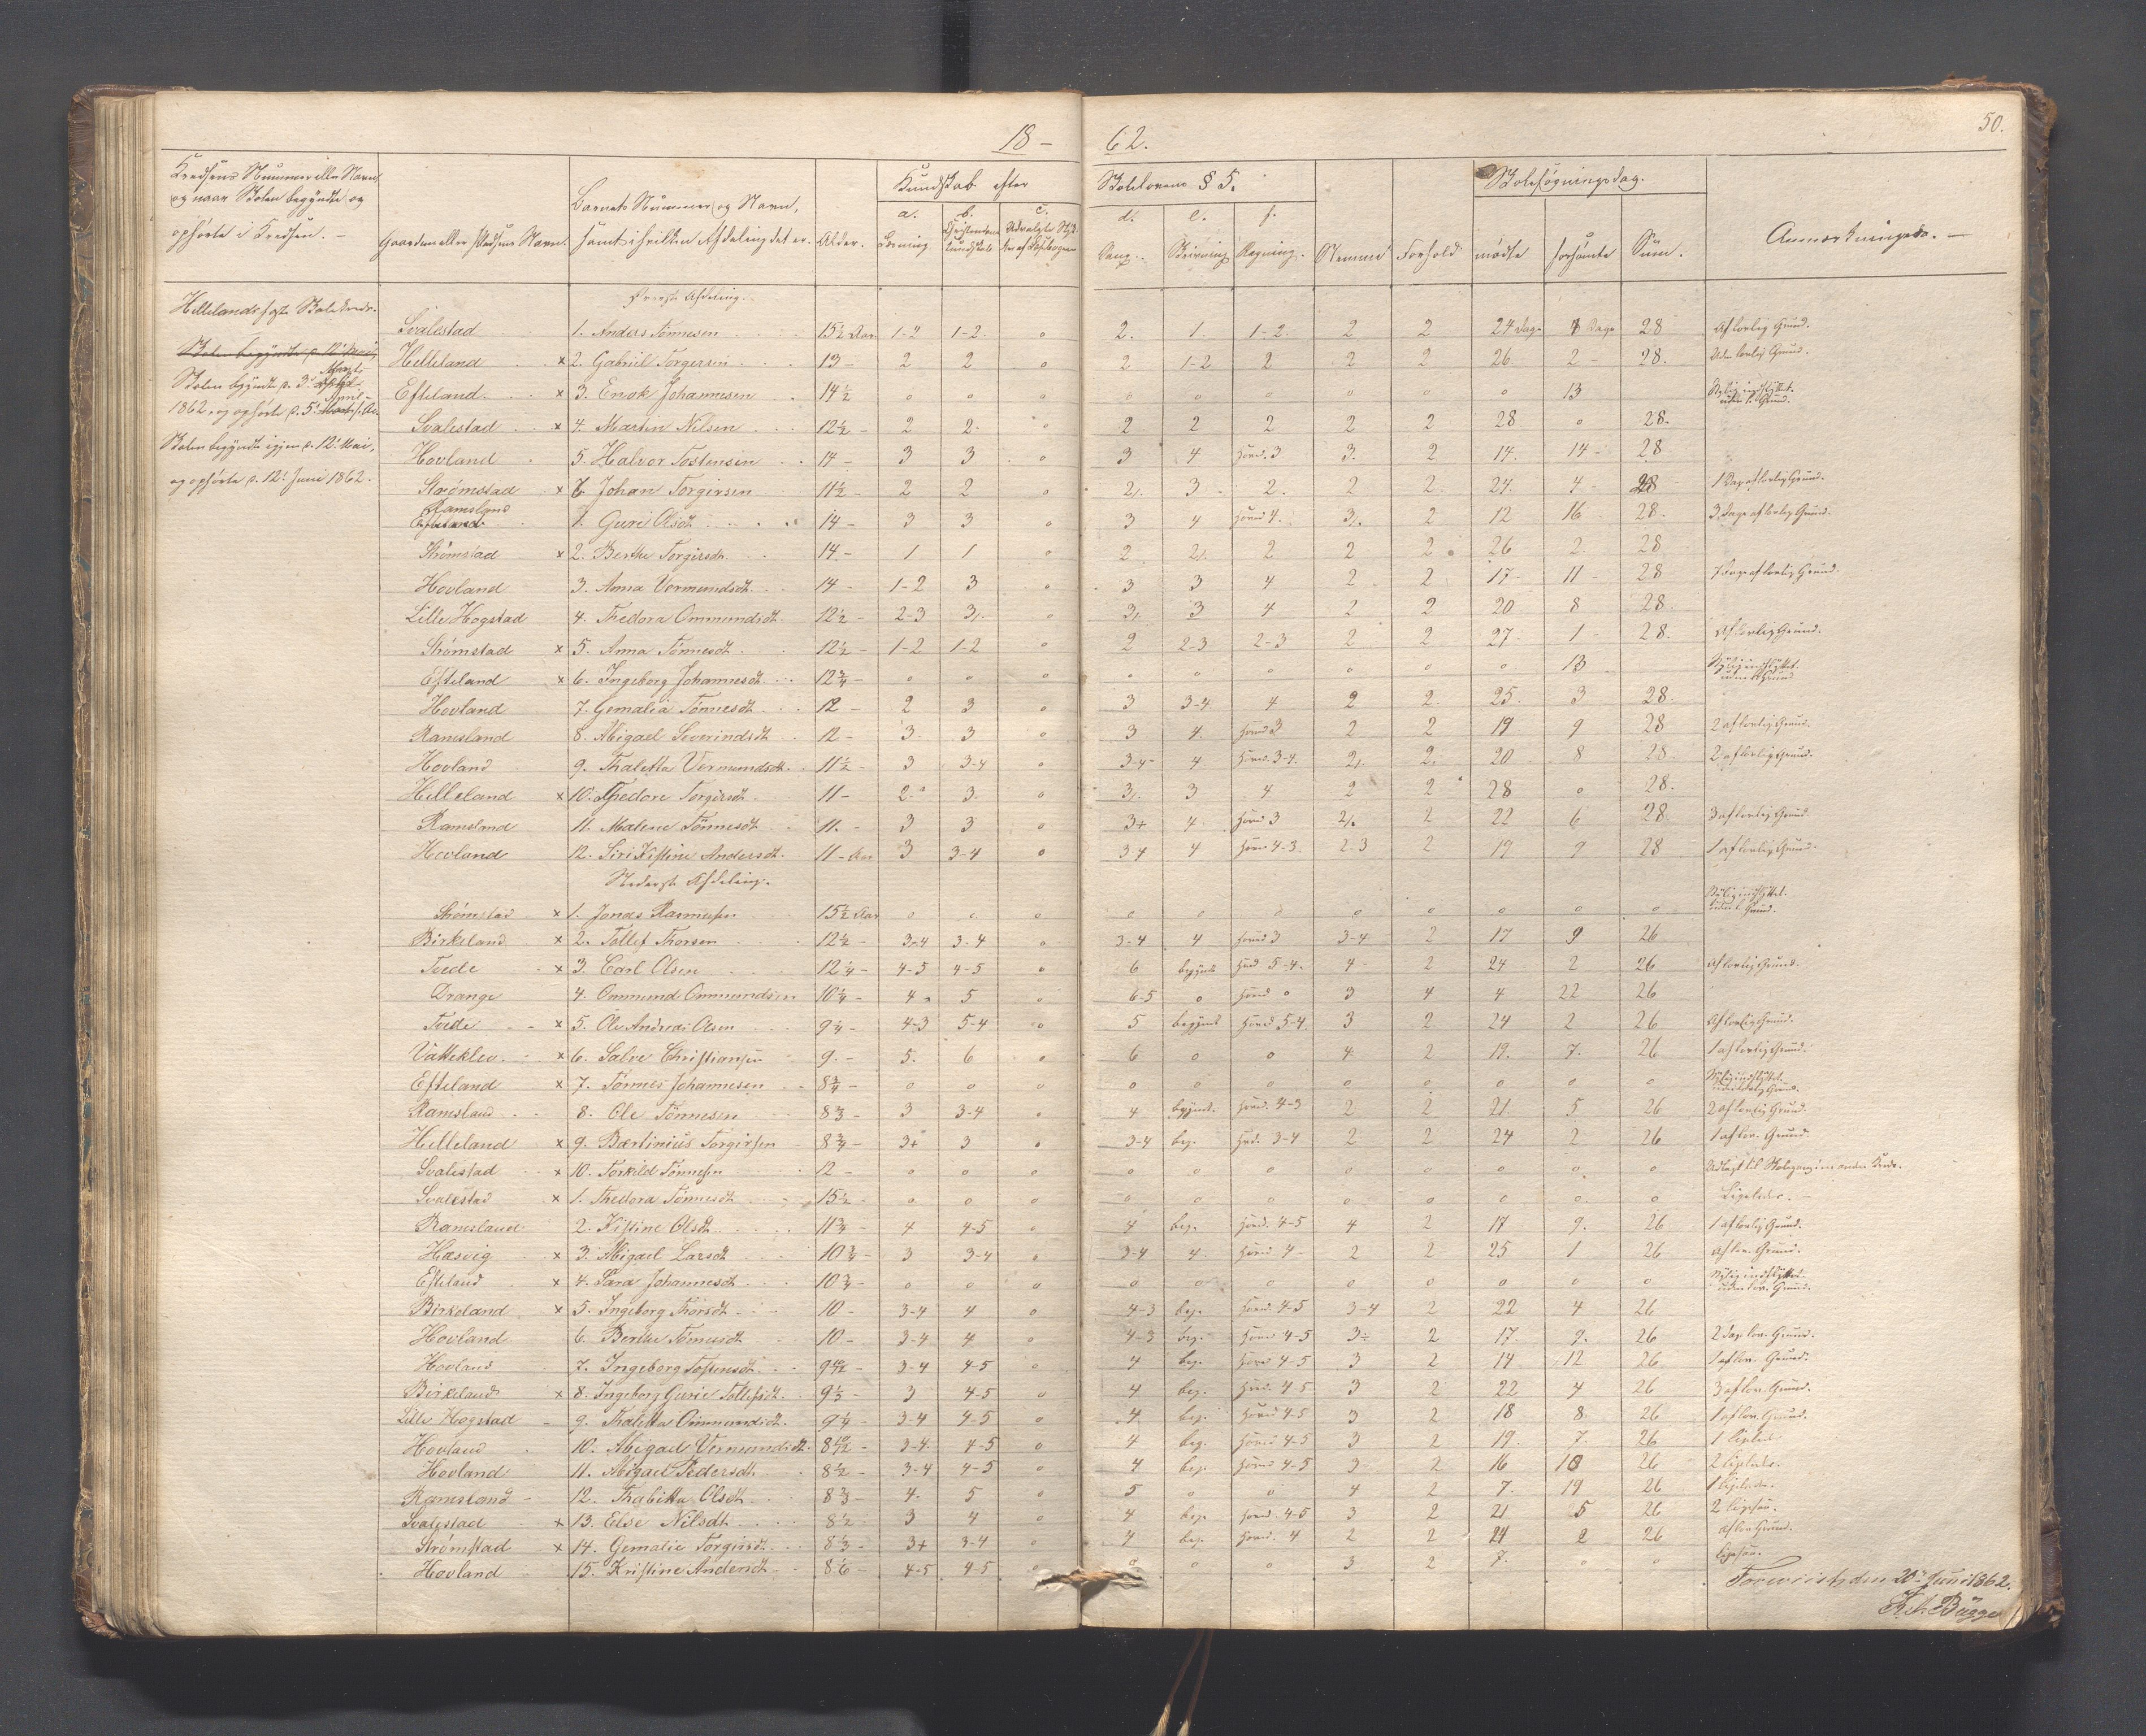 18 – 62.
50.
Kredsens Nummer eller Navn,
og naar Skolen begyndte og
ophørte i Kredsen. –
Gaardens eller Pladsens Navn.
Barnets Nummer og Navn,
samt i hvilken Afdeling det er.
Alder.
Kundskab efter Skoleloven § 5.
a. Læsning
b. Christendomskundskab
c. Udvalgte Stykker af Læsebogen
d. Sang.
e. Skrivning
f. Regning.
Nemme
Forhold
Skolesøgningsdag.
mødte
forsømte
Sum.
Anmærkninger. –
Hellelands faste Skolekreds.
Skolen begyndte d. 3.
1862 og ophørte d. 5. April
Skolen begyndte igjen d. 12. Mai,
og ophørte d. 12. Juni 1862.
Øverste Afdeling.
Svalestad 1. Anders Tönnesen 15½ Aar 1-2 1-2 0 2. 1. 1-2 2 2 24 Dage 4 Dage 28 Af lovlig Grund.
Helleland x 2. Gabriel Torgersen 13 – 2 2 0 2 1-2 2 2 2 26 2 – 28. Uden lovlig Grund.
Efteland x 3. Enok Johannesen 14½ 0 0 0 0 0 0 0 0 0 13 Nylig indflyttet.
Svalestad x 4. Martin Nilsen 12½ – 2 2 0 2 2 2 2 2 28 0 28.
Hovland 5. Halvor Tostensen 14 – 3 3 0 3 4 Hoved. 3 3. 2 14. 14 – 28
Strømstad x 6 Johan Torgersen 11½ – 2 2 0 2/. 3 2. 2 2 24. 4 – 28 1 Dag af lovlig Grund.
Ramsland 1. Guri Olsdt. 14 – 3 3 0 3 4 Hoved 4. 3/. 2 12 16 28. 3 Dage af lovlig Grund.
Strømstad x 2. Berthe Torgersdt. 14 – 1 1 0 2 2/. 2 2 2 26 2 28
Hovland 3. Anna Vermundsdt. 14 – 1-2 3 0 3 3 4 2 2 17 11 – 28 7 Dage af lovlig Grund.
Lille Hogstad 4. Thedora Ommundsdt. 12½ – 2-3 3/. 0 3/. 3 4 2 2 20 8 28.
Strømstad x 5. Anna Tönnesdt. 12½ – 1-2 1-2 0 2 2-3 2-3 2 2 27. 1 – 28. Af lovlig Grund.
Efteland x 6. Ingeborg Johannesdt. 12¾ – 0 0 0 0 0 0 0 0 0 13 Nylig indflyttet.
Hovland 7. Gemalia Tönnesdt. 12 – 2 3 0 3 3-4 4 2 2. 25. 3 28.
Ramsland 8. Abigael Severindsdt. 12 – 3 3 0 3 4. Hoved 3 2 2 19 9 28 2 af lovlig Grund.
Hovland 9. Thaletta Vermundsdt. 11½ – 3 3-4 0 3-4 4 Hoved. 3-4. 2/. 2. 20 8 28. 2 af lovlig Grund.
Helleland x 10. Thedore Torgersdt. 11 – 2. 3. 0 3/. 3 4 2 2 28 0 28.
Ramsland 11. Malene Tönnesdt. 11. – 3 3 0 3+ 4 Hoved 3 2/. 2 22 6 28 3 af lovlig Grund.
Hovland 12. Siri Kistine Andersdt. 11 – Aar 3 3-4 0 3-4 4 Hoved 4-3 2-3 2 19 9 28 1 af lovlig Grund.
Nederste Afdeling.
Strømstad x 1. Jonas Rasmussen 15½ Aar 0 0 0 0 0 0 0 0 0 0 0 Nylig indflyttet.
Birkeland x 2. Tollef Thorsen 12½ – 3-4 3-4 0 3-4 4 Hoved 3 3-4 2 17 9 26
Tvede x 3. Carl Olsen 12¼ – 4-5 4-5 0 6 begyndt Hoved 5-4. 4 – 2 24 2 26 Af lovlig Grund.
Drange 4. Ommund Ommundsen 10¼ – 4 5 0 6-5 0 Hoved 0 3 4 4 22 26
Tvede x 5. Ole Andreas Olsen 9¼ – 4-3 5-4 0 5 begyndt Hoved. 5-4 3 2 24 2 26 Af lovlig Grund.
Vatteklev. x 6. Salve Christiansen 9. – 5. 6 0 6 0 0 4 2 19. 7. 26 1 af lovlig Grund.
Efteland x 7. Tönnes Johannesen 8¾ – 0 0 0 0 0 0 0 0 0 0 0 Nylig indflyttet.
Ramsland 8. Ole Tönnesen 8⅔ – 3 3-4 0 4 begyndt. Hoved. 4-3 2 2 21. 5 26 2 af lovlig Grund.
Helleland x 9. Bærtinius Torgersen 8¾ – 3+ 3 0 3-4 beg. Hoved. 3-4 2 2 24 2 26 1 af lov. Grund.
Svalestad x 10. Torkild Tönnesen 12 – 0 0 0 0 0 0 0 0 0 0 0 Udlagt til Skolegang i en anden Kreds.
Svalestad x 1. Thedora Tönnesdt. 15½ – 0 0 0 0 0 0 0 0 0 0 0 Ligeledes. –
Ramsland 2. Kistine Olsdt. 11¾ – 4 4-5 0 4 beg. Hoved. 4-5 4 2 17 9. 26 1 af lovlig Grund.
Hæsvig x 3. Abigael Larsdt. 10¾ – 3 3-4 0 3-4 4. Hoved 4 – 2 2 25 1 26 Af lov. Grund.
Efteland x 4. Sara Johannesdt. 10¾ – 0 0 0 0 0 0 0 0 0 0 0 Nylig indflyttet
Birkeland x 5. Ingeborg Thorsdt. 10 – 3-4 4 0 4-3 beg. Hoved 4-5 3-4 2 22 4 26
Hovland 6. Berthe Tönnesdt. 10 – 3-4 4 0 4-3 beg. Hoved 4-5 3÷ 2 17. 9. 26 2 Dage lov. Grund.
Hovland 7. Ingeborg Tostensdt. 9 10/12 – 3-4 4-5 0 4 beg. Hoved 4-5 3 2 14 12 26 1 af lov. Grund.
Birkeland x 8. Ingeborg Gurie Tollefsdt. 9⅓ – 3 4-5 0 4 beg. Hoved. 4-5 3 2 22 4 26 3 af lov. Grund.
Lille Hogstad 9. Thaletta Ommundsdt. 9¼ – 3-4 4-5 0 4 beg. Hoved 4-5 3 2 18 8 26 1 af lov. Grund.
Hovland 10. Abigael Vermundsdt. 8 10/12 – 3-4 4-5 0 4 beg. Hoved 4-5 3 2 19. 7. 26 1 ligeled.
Hovland 11. Abigael Pedersdt. 8½ – 3-4 4-5 0 4 beg. Hoved 4-5 3 2 16 10 26 2 ligeledes.
Ramsland 12. Thabitta Olsdt. 8⅔ – 4. 5 0 5 0 0 4 2 7. 19 26 1 ligeledes.
Svalestad x 13. Else Nilsdt. 8½ – 3 4 0 4 beg. Hoved. 4-5 3 2 21 5 26 2 ligesaa.
Strømstad x 14. Gemalie Torgersdt. 8⅓ – 3+ 3-4 0 4 beg. Hoved. 4 2 2 24 2 26 af lov Grund.
Hovland 15. Kristine Andersdt. 8⅙ – 4-5 4-5 0 0 0 0 3 2 7. 0 0 ligesaa.
Foreviist den 20de Juni 1862.
Bugge